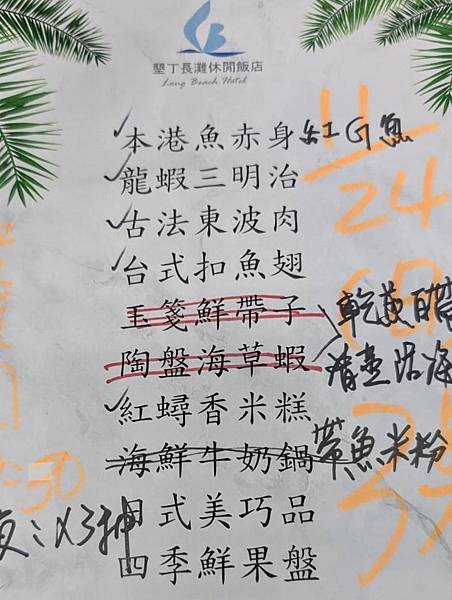 墾丁長灘休閒飯店
Long Beach Hotel
11/24
本港魚赤身 紅G魚
龍蝦三明治
古法東波肉
台式扣魚翅
玉箋鮮帶子
陶盤海草蝦
紅蟳香米糕
海鮮牛奶鍋 帶魚米粉
日式美巧品
四季鮮果盤